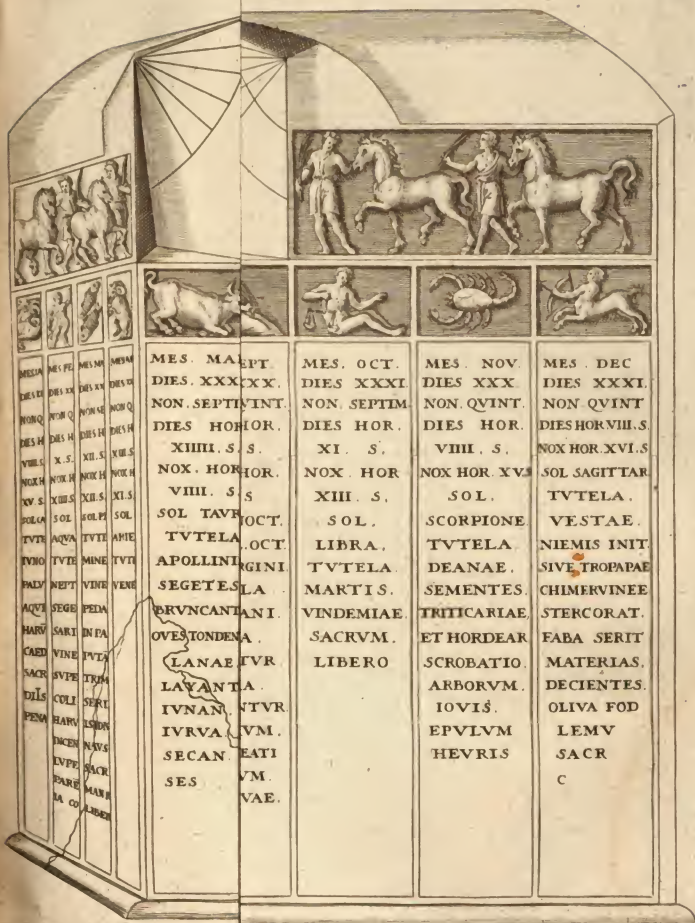 MESIA
DIES XX
NON Q
DIES H
VIIII.S.
NOX H
XV.S.
SOL CA
TVTE
IVNO
PALV
AQVI
HARV̄
CAED
SACR
DIIS
PENA
MES FE
DIES XX
NON Q
DIES H
X.S.
NOX H
XIII.S
SOL
AQVA
TVTE
NEPT
SEGE
SARI
VINE
SVPE
COLI
HARV
DICEN
LVPE
PARE
IA CO
MES MA
DIES XX
NON SE
DIES H
XII.S.
NOX H
XII.S.
SOL PI
TVTE
MINE
VINE
PEDA
IN PA
PVTA
TRIM
SERI
ISIDN
NAVS
SACR
MAN R
LIBER
MES M
DIES XX
NON Q
DIES H
XIII.S
NOX H
XI.S.
SOL
ARIE
TVTE
VENE
MES. MAI
DIES. XXX
NON. SEPTI
DIES HOR
XIIII. S.
NOX. HOR
VIIII. S.
SOL TAVR
TVTELA
APOLLINI
SEGETES
BRVNCANT
OVES TONDEN
LANAE
LAVANT
IVNAN.
IVRVA.
SECAN
SES
EPT.
XX.
VINT.
HOR.
S.
HOR.
S
OCT.
.OCT.
GINI.
LA
ANI.
A.
TVR
A.
NTVR
VM.
EATI
VM.
VAE.
MES. OCT.
DIES XXXI.
NON. SEPTIM
DIES HOR.
XI. S.
NOX HOR
XIII S.
SOL.
LIBRA.
TVTELA.
MARTIS.
VINDEMIAE.
SACRVM.
LIBERO
MES. NOV.
DIES XXX
NON. QVINT.
DIES HOR.
VIIII. S.
NOX HOR. XV.S
SOL.
SCORPIONE
TVTELA
DEANAE.
SEMENTES.
TRITICARIAE,
ET HORDEAR
SCROBATIO.
ARBORVM.
IOVIS.
EPVLVM
HEVRIS
MES. DEC
DIES XXXI.
NON QVINT
DIES HOR VIII. S.
NOX HOR. XVI.S
SOL SAGITTAR
TVTELA.
VESTAE.
NIEMIS INIT.
SIVE TROPAPAE
CHIMERVINEE
STERCORAT.
FABA SERIT
MATERIAS.
DECIENTES.
OLIVA FOD
LEMV
SACR
C